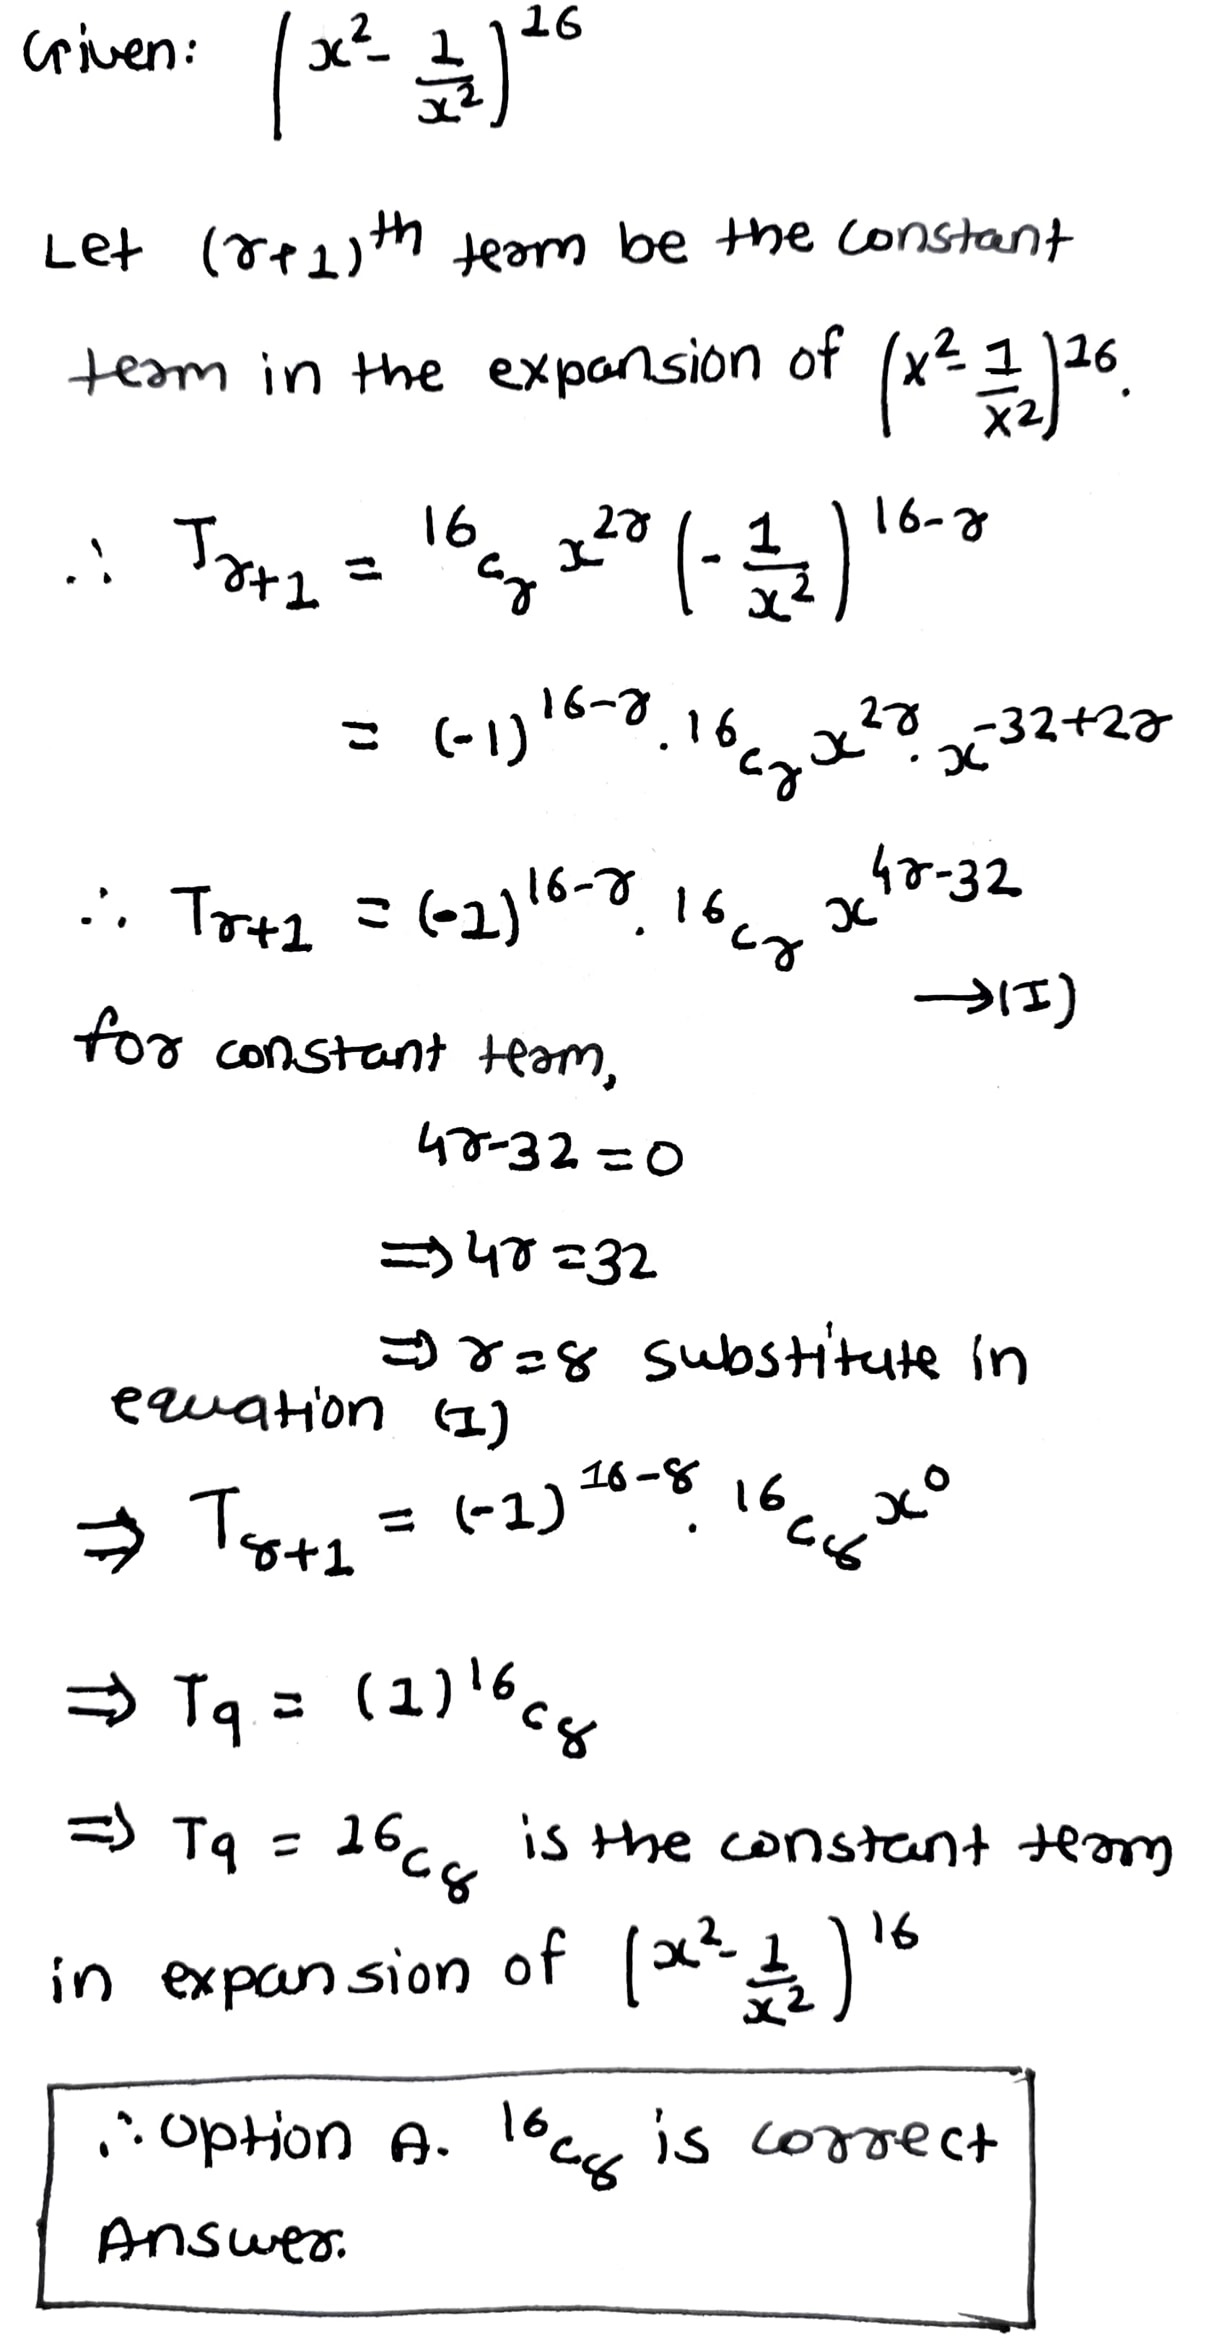 Given: (x² - 1/x²)^16
Let (r+1)^th term be the constant
term in the expansion of (x² - 1/x²)^16.
∴ T_{r+1} = ^16C_r x^{2r} (-1/x²)^{16-r}
= (-1)^{16-r} . ^16C_r x^{2r} . x^{-32+2r}
∴ T_{r+1} = (-1)^{16-r} . ^16C_r x^{4r-32}
→(I)
for constant term,
4r-32 = 0
⇒ 4r = 32
⇒ r = 8 substitute in
equation (I)
⇒ T_{8+1} = (-1)^{16-8} . ^16C_8 x^0
⇒ T_9 = (1) ^16C_8
⇒ T_9 = ^16C_8 is the constant term
in expansion of (x² - 1/x²)^16
∴ Option A. ^16C_8 is correct
Answer.